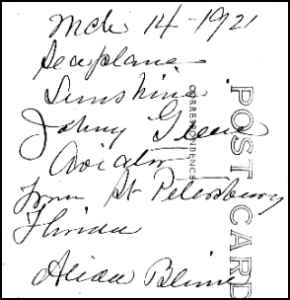 Mch 14-1921
Seaplane
Sunshine
Johny Green
Aviator
From St Petersburg
Florida
Blinn
POST CARD
CORRESPONDENCE